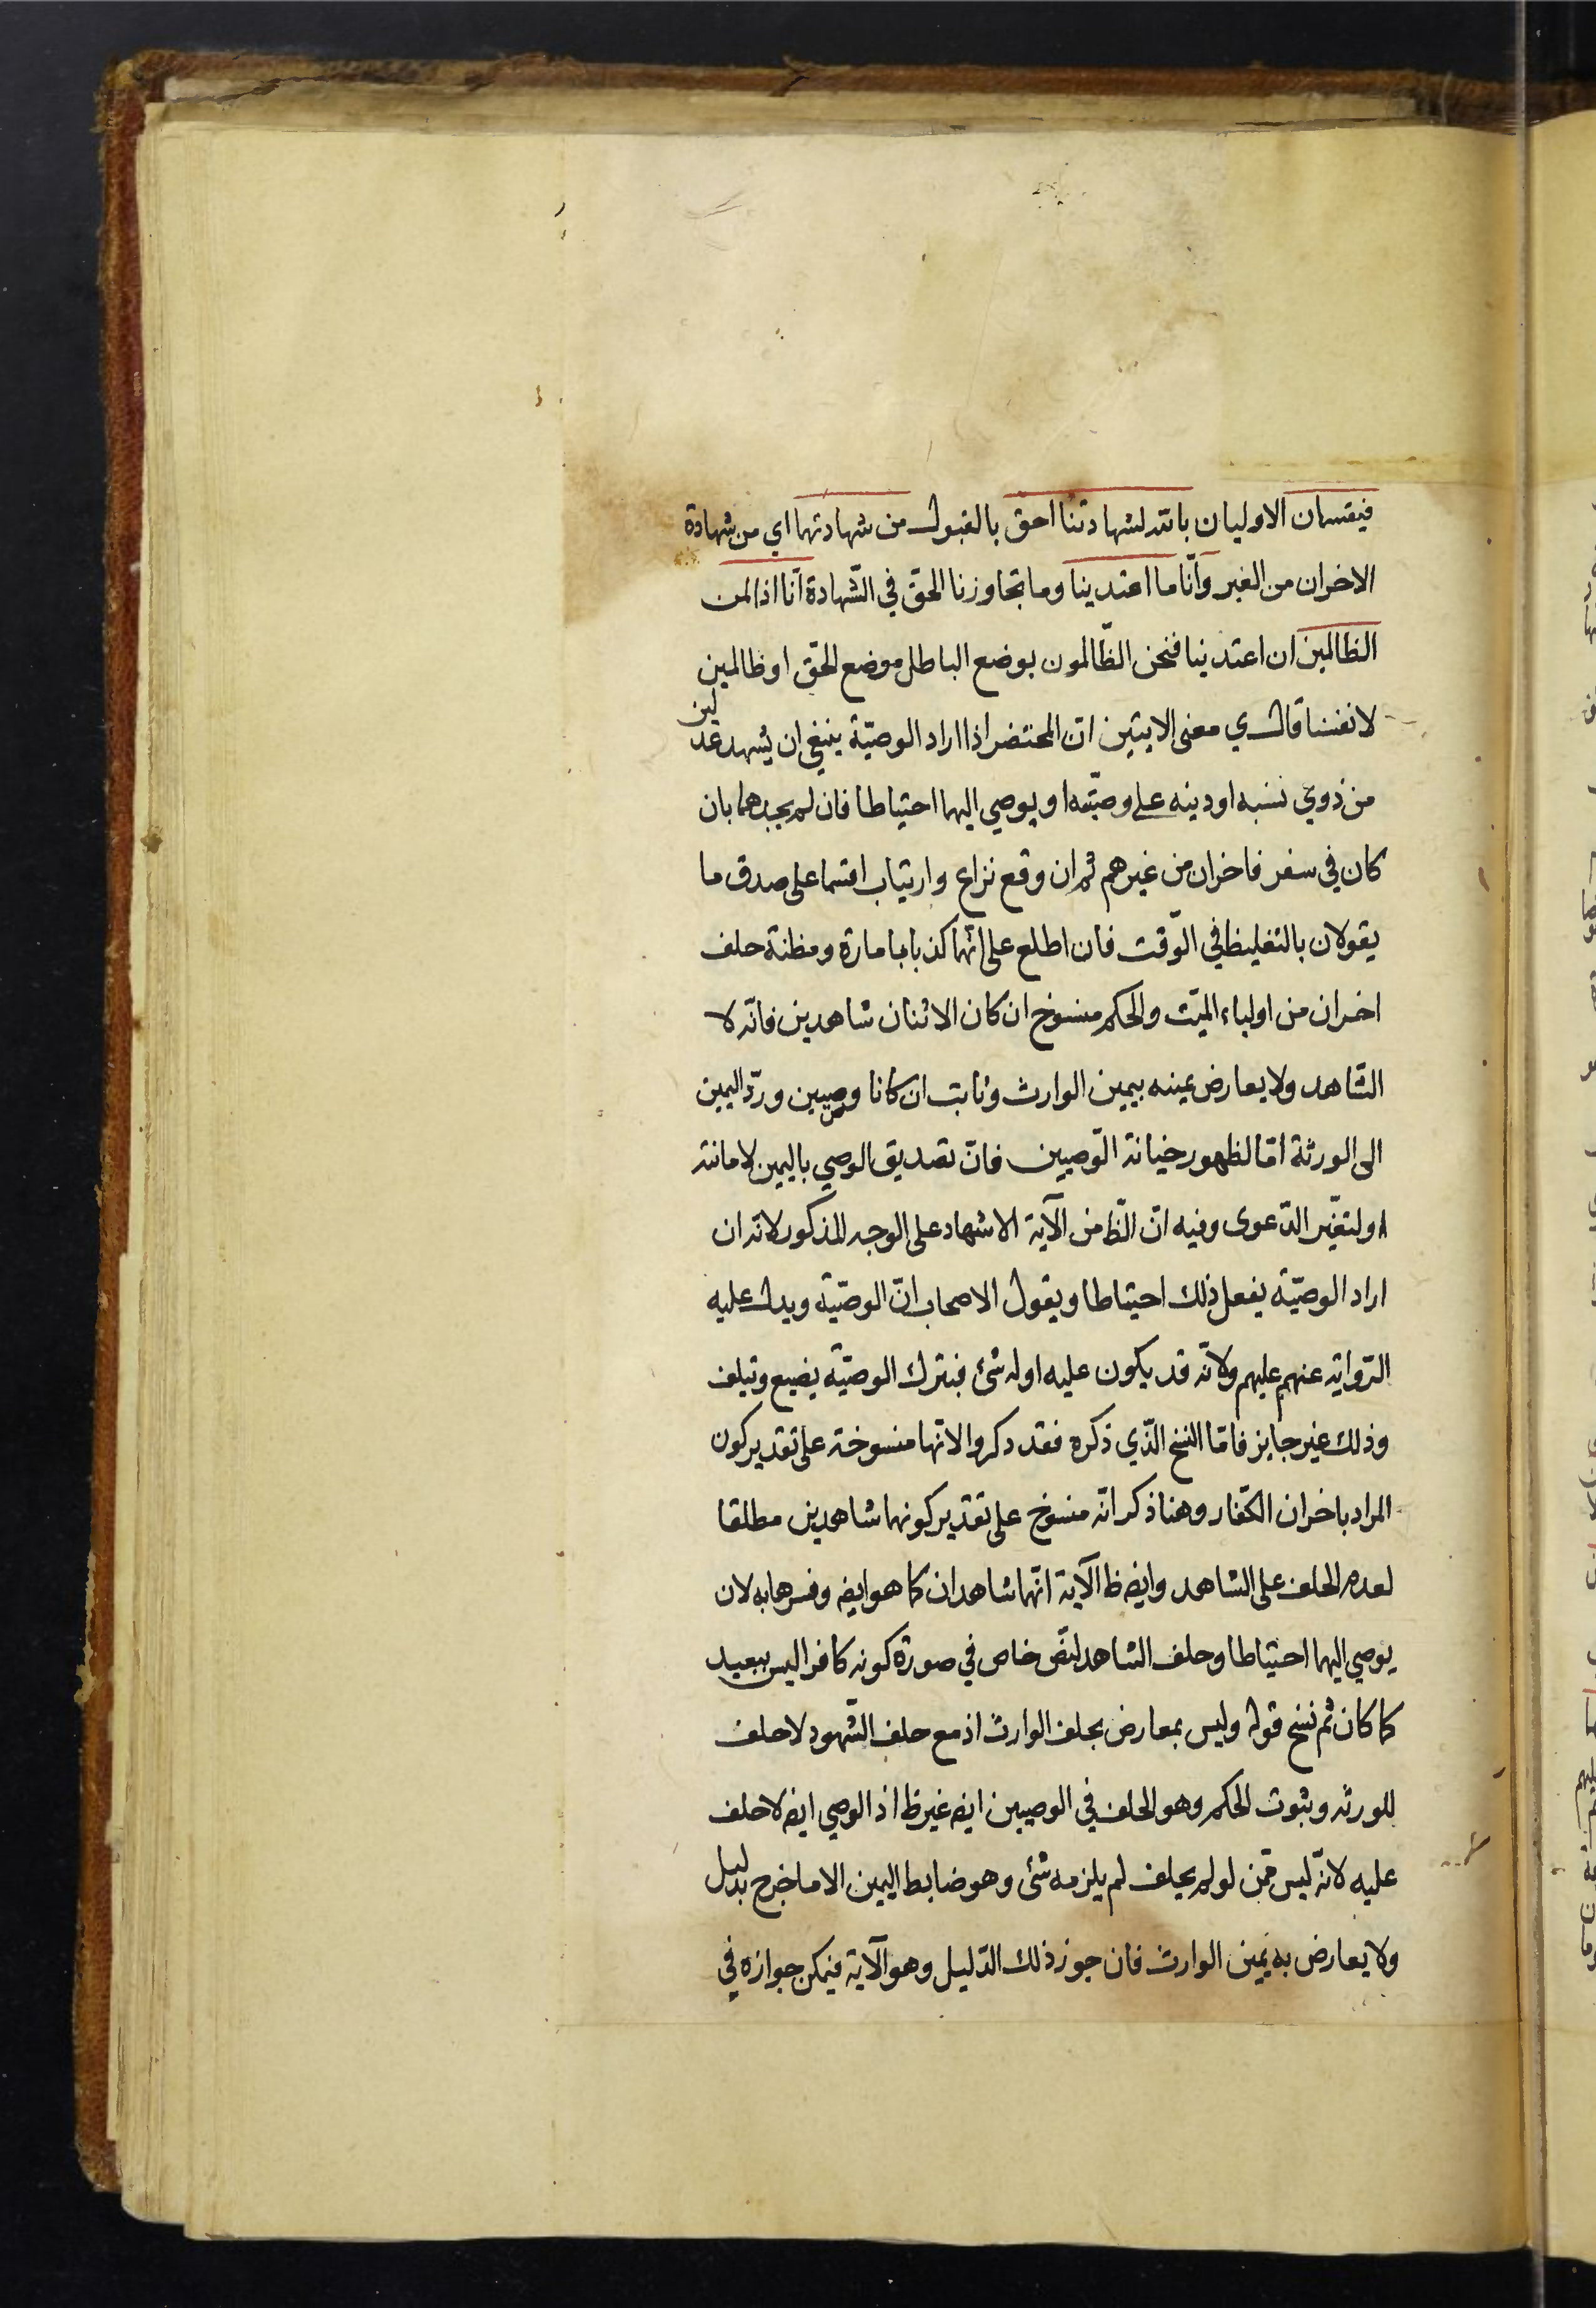 فيقسمان الاوليان بالله لشهادتنا احق بالقبول من شهادتهما اي من شهادة
الاخران من الغير وانّا ما اعتدينا وما تجاوزنا الحقّ في الشّهادة انّا اذا لمن
الظالمين ان اعتدينا فنحن الظّالمون بوضع الباطل موضع الحقّ او ظالمين
لانفسنا قال ي معنى الايتين انّ المحتضر اذا اراد الوصيّة ينبغي ان يُشهد عدلين
من ذوي نسبه او دينه على وصيّته او يوصي اليهما احتياطا فان لم يجدهما بان
كان في سفر فاخران من غيرهم ثم ان وقع نزاع وارتياب اقسما على صدق ما
يقولان بالتغليظ في الوّقت فان اطلع على انّهما كذبا بامارة ومظنة حلف
اخران من اولياء الميّت والحكم منسوخ ان كان الاثنان شاهدين فانّه لا
الشاهد ولا يعارض يمينه بيمين الوارث وثابت ان كانا وصيين وردّ اليمين
الى الورثة امّا لظهور خيانة الوّصيين فانّ تصديق الوصي باليمين لامانته
او لتغيّر الدّعوى وفيه انّ الظّ من الآية الاشهاد على الوجه المذكور لانّه ان
اراد الوصيّة يفعل ذلك احتياطا ويقول الاصحاب انّ الوصيّة ويدل عليه
الرّواية عنهم عليهم ولانّه قد يكون عليه او له شئ فبترك الوصيّة يضيع وتيلف
وذلك غير جايز فامّا النسخ الّذي ذكره فقد دكروا لانها منسوخة على تقدير كون
المراد باخران الكفّار وهنا ذكر انّه منسوخ على تقدير كونهما شاهدين مطلقا
لعدم الحلف على الشاهد وايضه ظ الآية انّهما شاهدان كما هو ايضه وفسرها به لان
يوصي اليهما احتياطا وحلف الشاهد لنصّ خاص في صورة كونه كافرا ليس ببعيد
كما كان ثم نسخ قوله وليس بمعارض بحلف الوارث اذ مع حلف الشّهود لا حلف
للورثه وبثبوت الحكم وهو الحلف في الوصيين ايضه غير ظ اذ الوصي ايضه لا حلف
عليه لانّه ليس ممّن لو لم يحلف لم يلزمه شئ وهو ضابط اليمين الا ما خرج بدليل
ولا يعارض به يمين الوارث فان جوز ذلك الدّليل وهو الآية فيمكن جوازه في